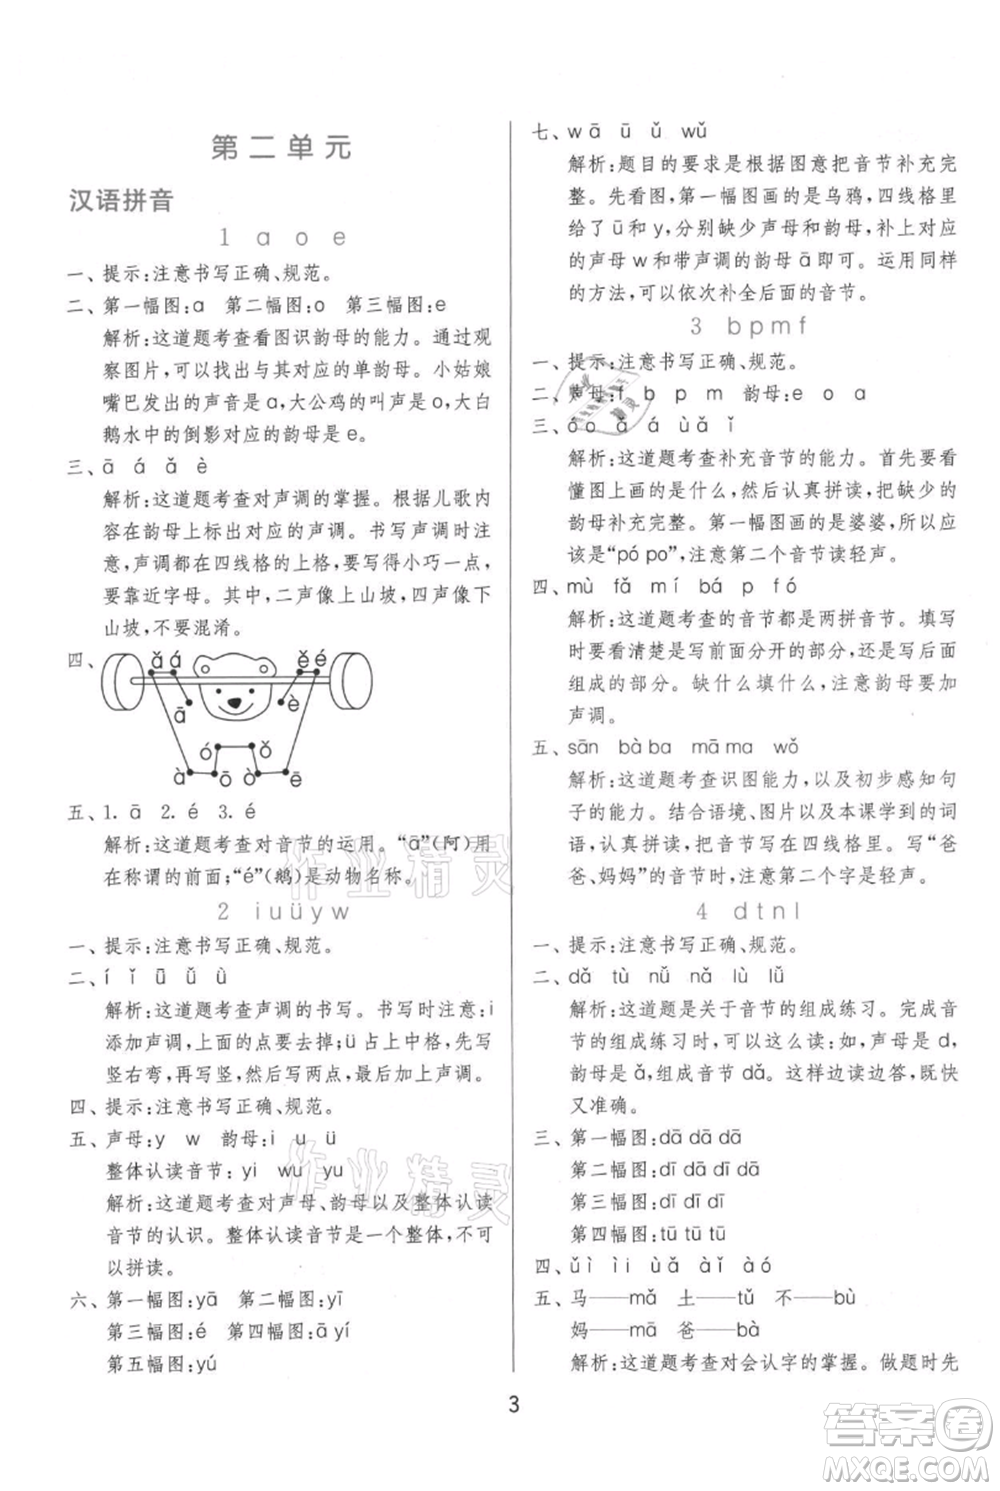 第二单元
汉语拼音
1 a o e
一、提示:注意书写正确、规范。
二、第一幅图:a 第二幅图:o 第三幅图:e
解析:这道题考查看图识韵母的能力。通过观
察图片,可以找出其对应的单韵母。小姑娘
嘴巴发出的声音是 a,大公鸡的叫声是 o,大白
鹅水中的倒影对应的韵母是 e。
三、ā á ǎ è
解析:这道题考查对声调的掌握。根据儿歌内
容在韵母上标出对应的声调。书写声调时注
意,声调都在四线格的上格,写得小巧一点,
要靠近字母。其中,二声像上山坡,四声像下
山坡,不要混淆。
四、
ǎ á ě é
ā è
ó ǒ
à ō ò ē
五、1. ā 2. é 3. é
解析:这道题考查对音节的运用。“ā”(阿)用
在称谓的前面;“é”(鹅)是动物名称。
2 i u ü y w
一、提示:注意书写正确、规范。
二、í ǐ ū ǔ ù
解析:这道题考查声调的书写。书写时注意:i
添加声调,上面的点要去掉;ü 占上中格,先写
竖右弯,再写竖,然后写两点,最后标上声调。
四、提示:注意书写正确、规范。
五、声母:y w 韵母:i u ü
整体认读音节:yi wu yu
解析:这道题考查对声母、韵母以及整体认读
音节的认识。整体认读音节是一个整体,不可
以拼读。
六、第一幅图:yā 第二幅图:yī
第三幅图:é 第四幅图:ā yí
第五幅图:yú
七、wā ū ǔ wǔ
解析:题目的要求是根据图意把音节补充完
整。先看图,第一幅图画的是乌鸦,四线格里
给了 ū 和 y,分别缺少声母和韵母,补上对应
的声母 w 和带声调的韵母 ā 即可。运用同样
的方法,可以依次补全后面的音节。
3 b p m f
一、提示:注意书写正确、规范。
二、声母:f b p m 韵母:e o a
三、ó o ǎ á ù ǎ ǐ
解析:这道题考查补充音节的能力。首先要看
懂图上画的是什么,然后认真拼读,把缺少的
的韵母补充完整。第一幅图画的是婆婆,所以应
该是“pó po”,注意第二个音节读轻声。
四、mù fǎ m í bá p f ó
解析:这道题考查的音节都是两拼音节。填写
时要看清楚是写前面分开的部分,还是写后面
组成的部分。缺什么填什么,注意韵母要加
声调。
五、sān bà ba mā ma wǒ
解析:这道题考查识图能力,以及初步感知句
子的能力。结合语境、图片和本课学到的词
语,认真拼读,把音节写在四线格里。写“爸
爸、妈妈”的音节时,注意第二个字是轻声。
4 d t n l
一、提示:注意书写正确、规范。
二、dǎ tù nǚ nǎ lù lǚ
解析:这道题是关于音节的组成练习。完成音
节的组成练习时,可以这么读:如,声母是 d,
韵母是 ǎ,组成音节 dǎ。这样边读边答,既快
又准确。
三、第一幅图:dā dā dā
第二幅图:dā dā
第三幅图:dī dī dī
第四幅图:tū tū tū
四、ǔ ì ì i ǎ à ǐ à ó
五、马——mǎ 土——tǔ 不——bù
妈——mā 爸——bà
解析:这道题考查对会认字的掌握。做题时先
3
作业精灵
作业精灵
答案卷
MXQE.COM